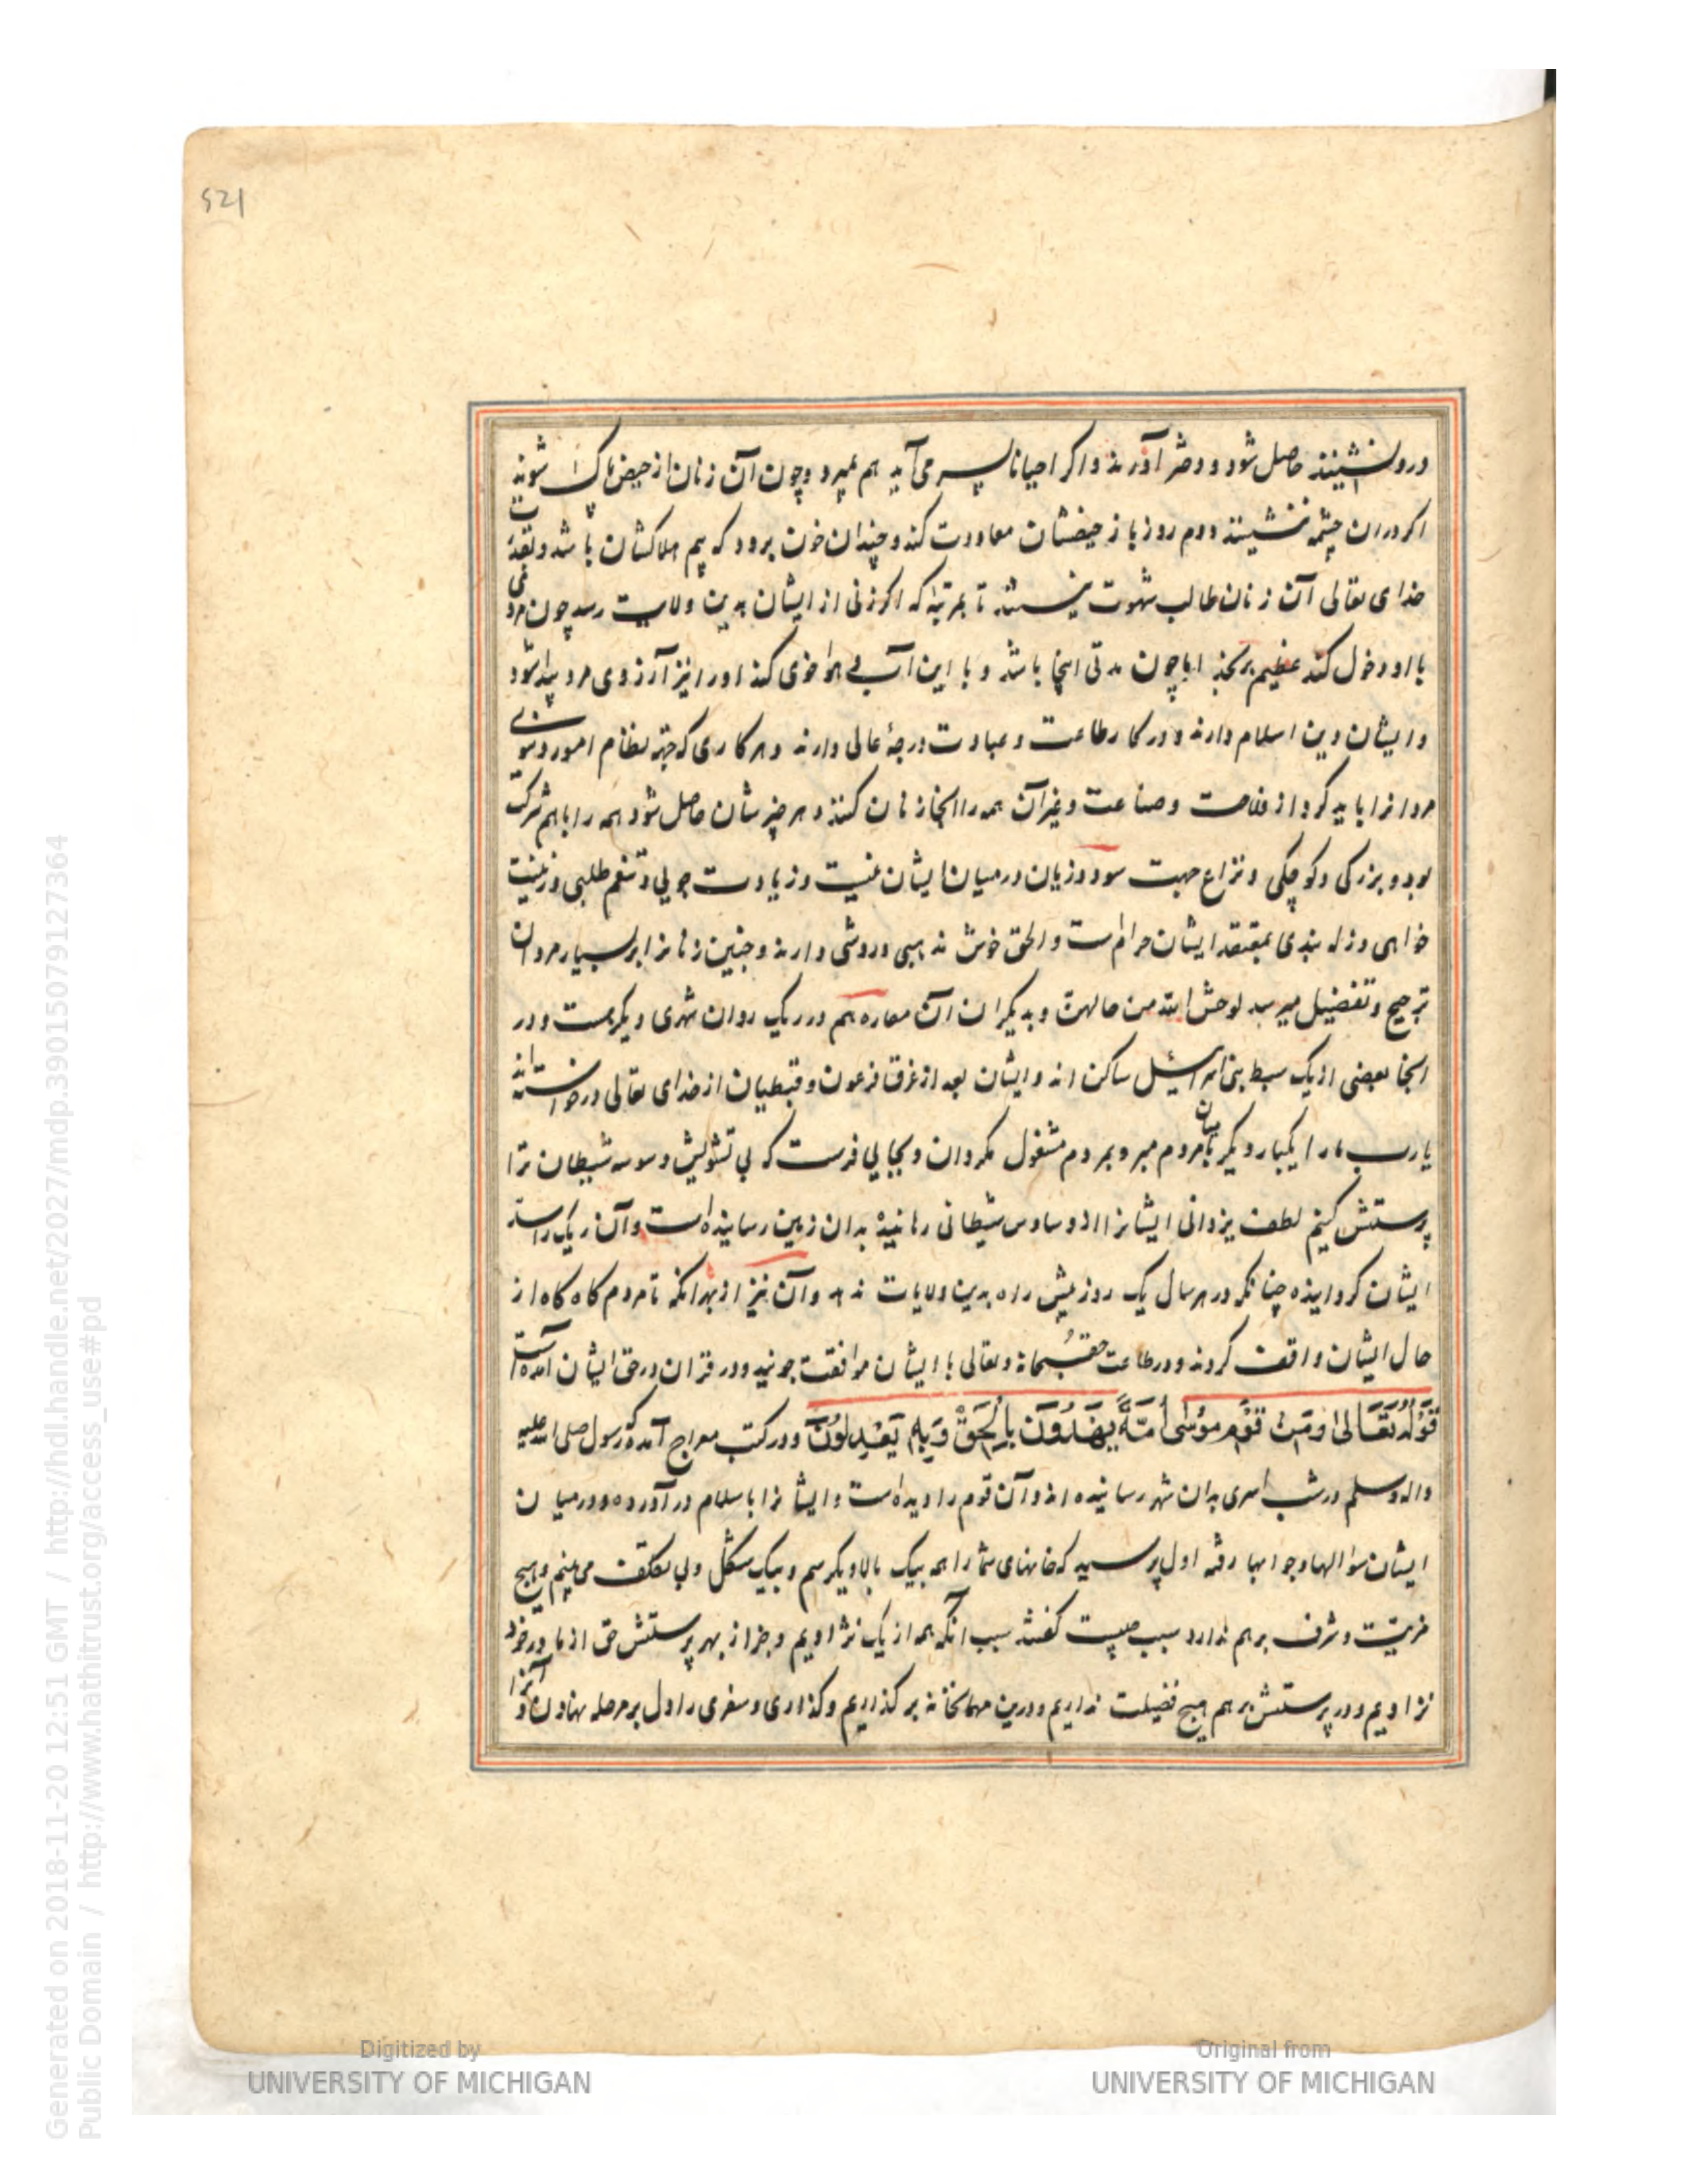 521
درو نشینند حاصل شود و دختر آورند و اکر احیانا پسر می آید هم بمیرد و چون آن زنان از حیض پاک شوند
اکر در ان چشمه ننشینند دوم روز باز حیضشان معاودت کند و چندان خون برود که بیم هلاکشان باشد و بقدرت
خدای تعالی آن زنان طالب شهوت نیستند تا بمرتبهٔ که اکر زنی از ایشان بدین ولایت رسد چون مردی
با او دخول کند عظیم برنجد اما چون مدتی اینجا باشد و با این آب و هوا خوی کند او را نیز آرزوی مرد پیدا شود
و ایشان دین اسلام دارند و در کار طاعت و عبادت درجهٔ عالی دارند و هر کاری که جهة نظام امور دنیوی
مردانرا باید کرد از فلاحت و صناعت و غیر آن همه را انجا زنان کنند و هر چیز شان حاصل شود همه را با هم شرکت
بود و بزرکی و کوچکی و نزاع جهت سود و زیان در میان ایشان نیست و زیادت جویی و تنعم طلبی و زینت
خواهی و زله بندی بمعتقد ایشان حرامست و الحق خوش مذهبی و روشی دارند و چنین زنانرا بر بسیار مردان
ترجیح و تفضیل میرسد لوحش الله من حالهن و بدیکر ان آن مغاره هم در ریک روان شهری دیکرست و در
انجا بعضی از یک سبط بنی اسرائیل ساکن اند و ایشان بعد از غرق فرعون و قبطیان از خدای تعالی درخواستند
یا رب ما را یکبار دیکر بمیان مردم مبر و بمردم مشغول مکردان و بجایی فرست که بی تشویش وسوسه شیطان ترا
پرستش کنیم لطف یزدانی ایشانرا از وساوس شیطانی رهانیده بدان زمین رسانیده است و آن ریک را سد
ایشان کردانیده چنانکه در هر سال یک روز بیش راه بدین ولایات ندهد و آن نیز از بهر آنکه تا مردم کاه کاه از
حال ایشان واقف کردند و در طاعت حق سبحانه و تعالی با ایشان موافقت جویند و در قران در حق ایشان آمده است
قوله تعالی وَمِنْ قَوْمِ مُوسَى أُمَّةٌ يَهْدُونَ بِالْحَقِّ وَبِهِ يَعْدِلُونَ و در کتب معراج آمده که رسول صلی الله علیه
واله وسلم در شب اسری بدان شهر رسانیده اند و آن قوم را دیده است و ایشانرا باسلام در آورده و در میان
ایشان سؤالها و جوابها رفته اول پرسید که خانهای شما را همه بیک بالا و یک رسم و بیک شکل و بی تکلف می بینم و هیچ
مزیت و شرف بر هم ندارد سبب چیست کفتند سبب آنکه همه از یک نژادیم و جز از بهر پرستش حق از مادر خود
نزادیم و در پرستش بر هم هیچ فضیلت نداریم و درین مهمانخانه بر کذاریم و کذاری و سفری را دل بر مرحله نهادن و آنرا
Generated on 2018-11-20 12:51 GMT / http://hdl.handle.net/2027/mdp.39015079127364
Public Domain / http://www.hathitrust.org/access_use#pd
Digitized by
UNIVERSITY OF MICHIGAN
Original from
UNIVERSITY OF MICHIGAN